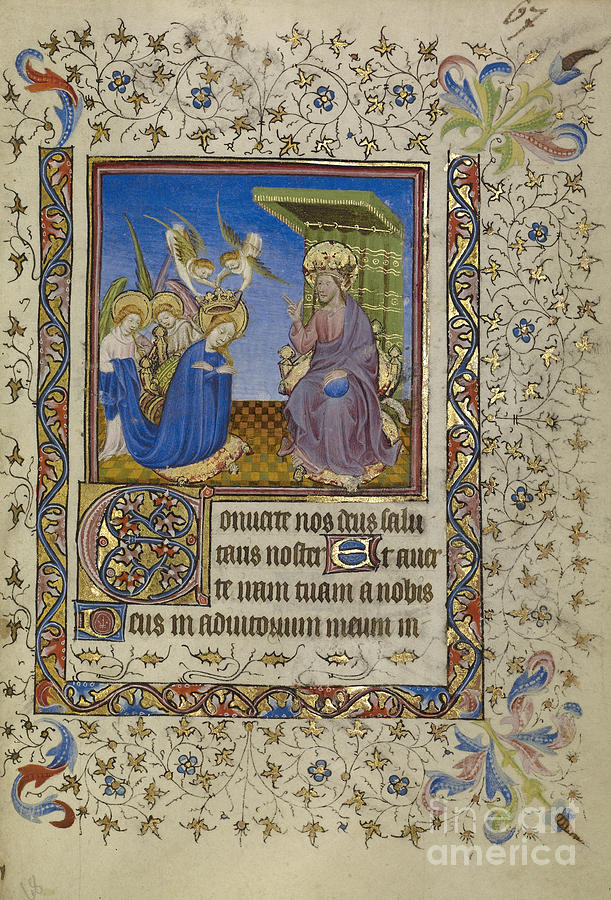 67
Conuerte nos deus salu
taris noster Et auer
te iram tuam a nobis
Deus in adiutorium meum in
fine art
america